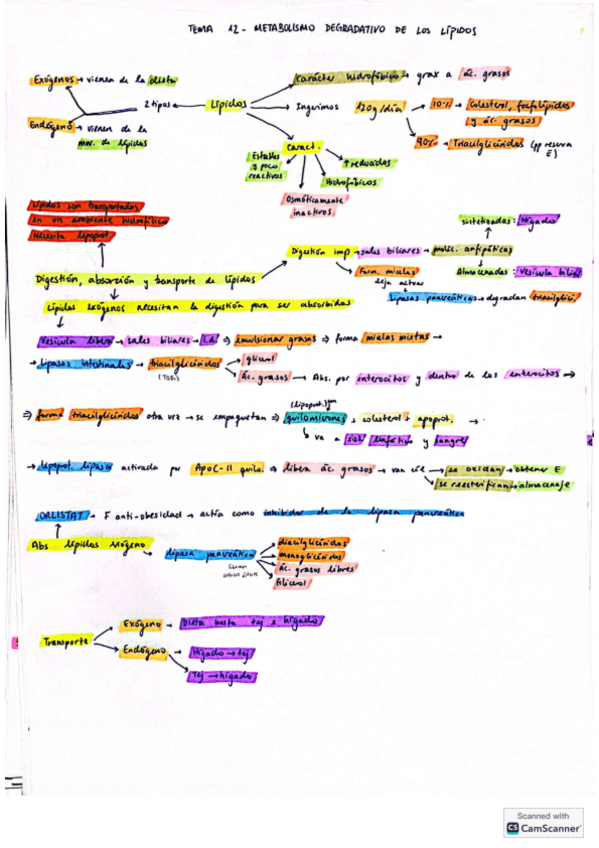 TEMA 12 - METABOLISMO DEGRADATIVO DE LOS LÍPIDOS
Exógenos → vienen de la dieta
2 tipos
Endógeno → vienen de la
mov. de lípidos
Lípidos
Carácter hidrofóbico → grax a ác. grasos
Ingerimos 120g/día
10% → Colesterol, fosfolípidos
y ác. grasos
90% → Triacilglicéridos (pp reserva
E)
Caract.
Estables
y poco
reactivos
↑ reducidos
Hidrofóbicos
Osmóticamente
inactivos
Lípidos son transportados
en un ambiente hidrofílico
Necesita lipoprot.
Digestión, absorción y transporte de lípidos
Digestión imp → sales biliares → moléc. anfipáticas
sintetizadas: Hígado
Almacenadas: vesícula biliar
Form. micelas
deja actuar
Lipasas pancreáticas → degradan triacilglic.
Lípidos exógenos necesitan la digestión para ser absorbidos
Vesícula libera → sales biliares → I.d ⇒ emulsionar grasas ⇒ forma micelas mixtas →
→ Lipasas intestinales → triacilglicéridos
(TAGs)
glicerol
ác. grasos → Abs. por enterocitos y dentro de los enterocitos →
⇒ forma triacilglicéridos otra vez → se empaquetan ⇒ quilomicrones + colesterol + apoprot. →
va a sist linfático y sangre
→ lipoprot. lipasa activada por ApoC-II quilo. ⇒ libera ác. grasos → van
se oxidan → obtener E
se reesterifican → almacenaje
ORLISTAT → F anti-obesidad → actúa como inhibidor de la lipasa pancreática
Abs lípidos exógeno
lipasa pancreática
diacilglicéridos
monoglicéridos
ác. grasos libres
Glicerol
Transporte
Exógeno → Dieta hasta tej e hígado
Endógeno → Hígado → tej
Tej → hígado
Scanned with
CS CamScanner